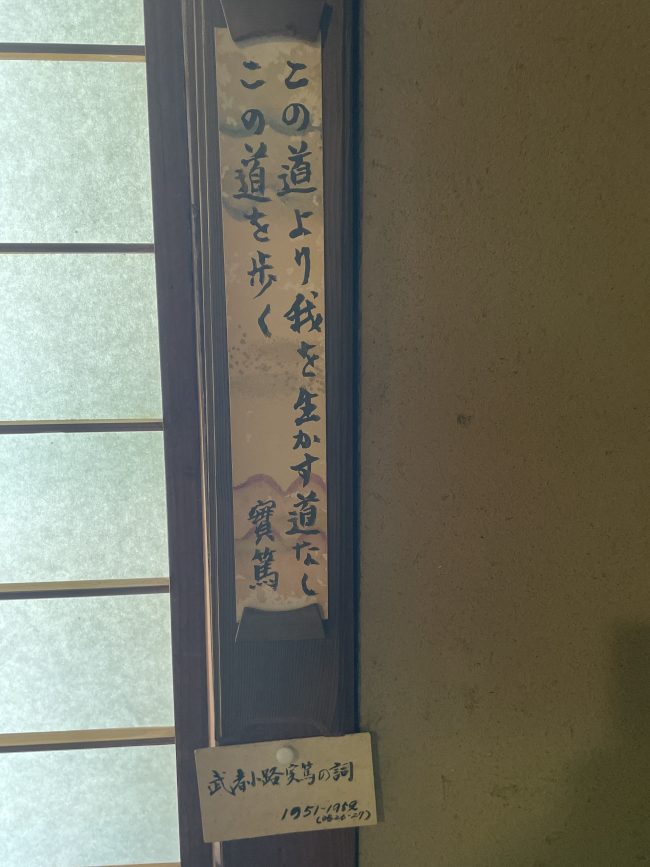 この道より我を生かす道なし
この道を歩く
實篤
武者小路実篤の詞
1951-1952
(S26-27)